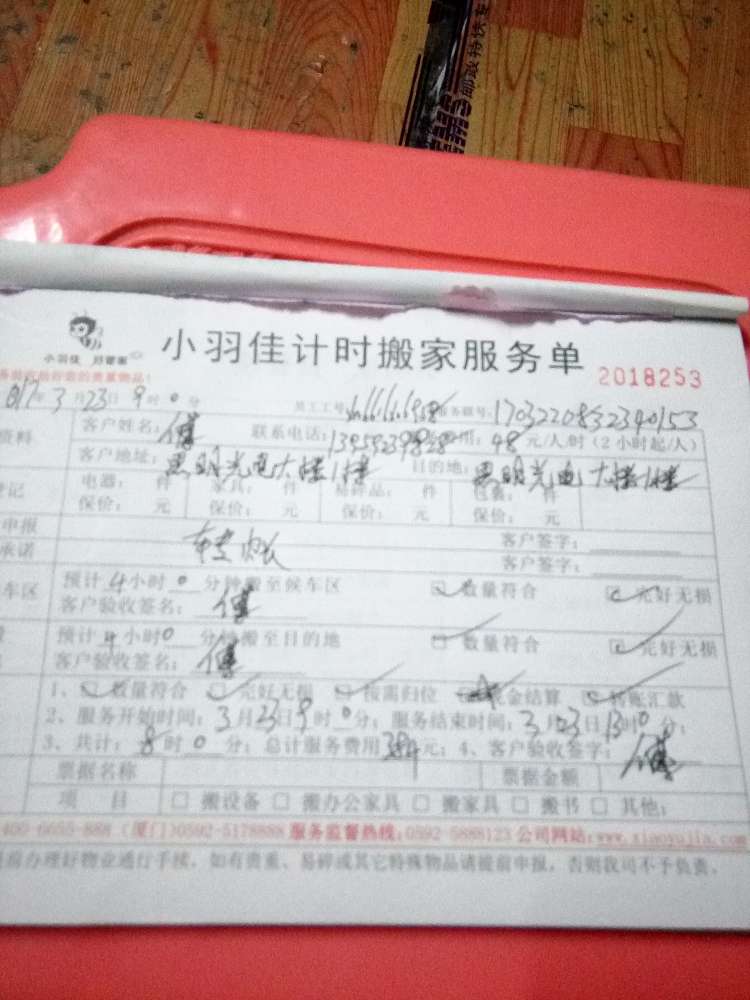 邮政特快专
小羽佳 好管家
小羽佳计时搬家服务单
2018253
贵重物品！
3月23日9时0分 员工工号: 服务联号:1703220832340153
资料 客户姓名:傅 联系电话: 48元/人/时(2小时起/人)
客户地址:思明光电大楼1楼 目的地:思明光电大楼1楼
登记 电器: 件 家具: 件 易碎品: 件 包裹: 件
保价: 元 保价: 元 保价: 元 保价: 元
申报 客户签字:
承诺 客户签字:
车区 预计4小时0分钟搬至候车区 数量符合 完好无损
客户验收签名:傅
预计4小时0分钟搬至目的地 数量符合 完好无损
客户验收签名:傅
1、数量符合 完好无损 按需归位 现金结算 转账汇款
2、服务开始时间:3月23日9时0分; 服务结束时间:3月23日13时0分;
3、共计:8时0分; 总计服务费用384元; 4、客户验收签字:傅
票据名称 票据金额
项 目 搬设备 搬办公家具 搬家具 搬书 其他:
400-6655-888 (厦门)0592-5178888 服务监督热线:0592-5888123 公司网站:www.xiaoyujia.com
前办理好物业通行手续, 如有贵重、易碎或其它特殊物品请提前申报, 否则我司不予负责。